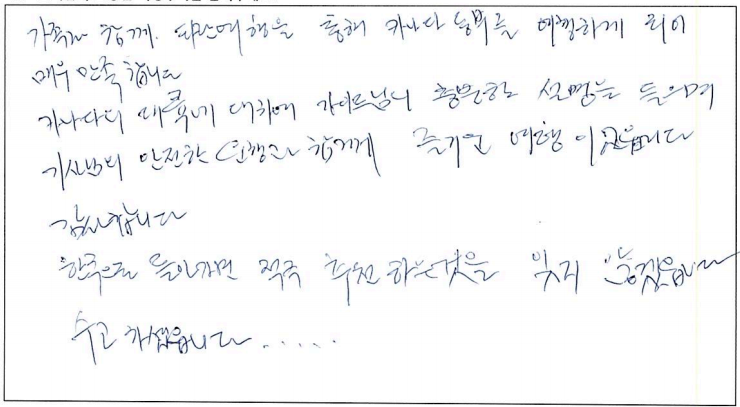 가족과 함께 파란여행을 통해 캐나다 동부를 여행하게 되어
매우 만족합니다
캐나다의 대륙에 대하여 가이드님의 충분한 설명을 들으며
기사님의 안전한 운행과 함께 즐거운 여행이었습니다
감사합니다
한국으로 돌아가면 적극 추천하는것을 잊지 않겠습니다
수고하셨습니다.....